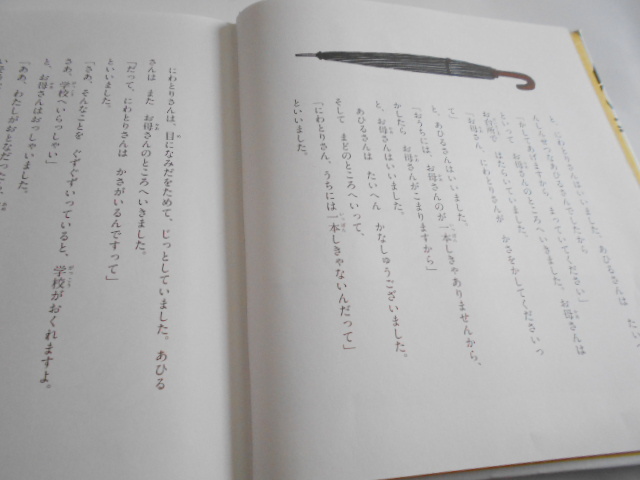 と、にわとりさんはいいました。あひるさんは たいへ
んしんせつなあひるさんでしたから
「かしてあげますから、まっていてください」
といって お母さんのところへいきました。お母さんは
お台所で はたらいていました。
「お母さん、にわとりさんが かさをかしてくださいっ
て」
と、あひるさんはいいました。
「おうちには、お母さんのが一本しきゃありませんから、
かしたら お母さんがこまりますから」
と、お母さんはいいました。
あひるさんは たいへん かなしゅうございました。
そして まどのところへいって、
「にわとりさん、うちには一本しきゃないんだって」
といいました。
にわとりさんは、目になみだをためて、じっとしていました。あひる
さんは また お母さんのところへいきました。
「だって、にわとりさんは かさがいるんですって」
といいました。
「さあ、そんなことを ぐずぐずいっていると、学校がおくれますよ。
さあ、学校へいらっしゃい」
と、お母さんはおっしゃいました。
「ああ、わたしがおとなだったら、